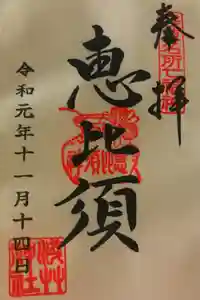 奉拝
恵比須
令和元年十一月十四日